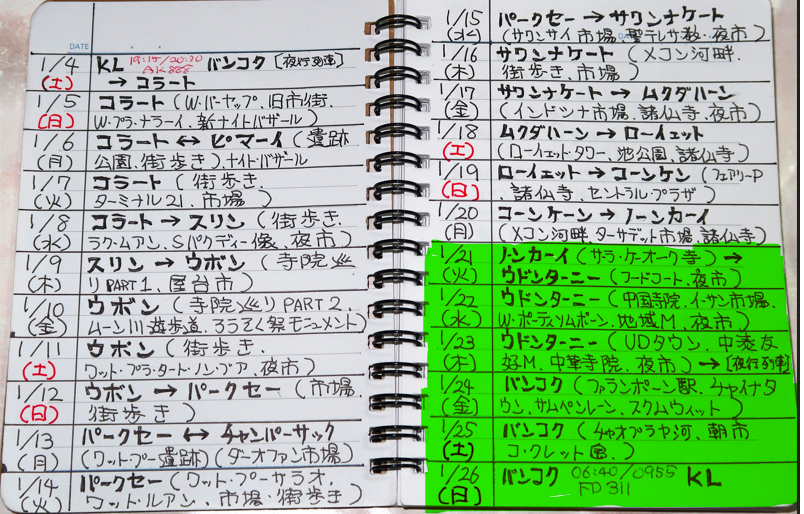 DATE
1/4 KL 19:15/20:30 バンコク [夜行列車]
(土) AK888 → コラート
1/5 コラート (W.パーヤップ、旧市街、
(日) W.プラ・ナラーイ、新ナイトバザール)
1/6 コラート ↔ ピマーイ (遺跡
(月) 公園、街歩き)、ナイトバザール
1/7 コラート (街歩き、
(火) ターミナル21、市場)
1/8 コラート → スリン (街歩き、
(水) ラク・ムアン、Sパクディー像、夜市)
1/9 スリン → ウボン (寺院巡
(木) りPART1、屋台市)
1/10 ウボン (寺院巡りPART2、
(金) ムーン川遊歩道、ろうそく祭モニュメント)
1/11 ウボン (街歩き、
(土) ワット・プラ・タート・ノン・ブア、夜市)
1/12 ウボン → パークセー (市場、
(日) 街歩き)
1/13 パークセー ↔ チャンパーサック
(月) (ワット・プー遺跡)(ダーオファン市場)
1/14 パークセー (ワット・プーサラオ、
(火) ワット・ルアン、市場・街歩き)
1/15 パークセー → サワンナケート
(水) (サワンサイ市場、聖テレサ教、夜市)
1/16 サワンナケート (メコン河畔、
(木) 街歩き、市場)
1/17 サワンナケート → ムクダハーン
(金) (インドシナ市場、諸仏寺、夜市)
1/18 ムクダハーン → ローイェット
(土) (ローイェットタワー、池公園、諸仏寺)
1/19 ローイェット → コーンケン (フェアリーP
(日) 、諸仏寺、セントラル・プラザ)
1/20 コーンケーン → ノーンカーイ
(月) (メコン河畔、ターサデット市場、諸仏寺)
1/21 ノンカーイ (サラ・ケーオーク寺) →
(火) ウドンターニー (フードコート、夜市)
1/22 ウドンターニー (中国寺院、イーサン市場、
(水) W.ポーティソムポーン、地域M、夜市)
1/23 ウドンターニー (UDタウン、中泰友
(木) 好M、中華寺院、夜市) → [夜行列車]
1/24 バンコク (ファランポーン駅、チャイナタ
(金) ウン、サムペンレーン、スクムウィット)
1/25 バンコク (チャオプラヤ河、朝市
(土) コ・クレット島、)
1/26 バンコク 06:40/0955 KL
(日) FD311